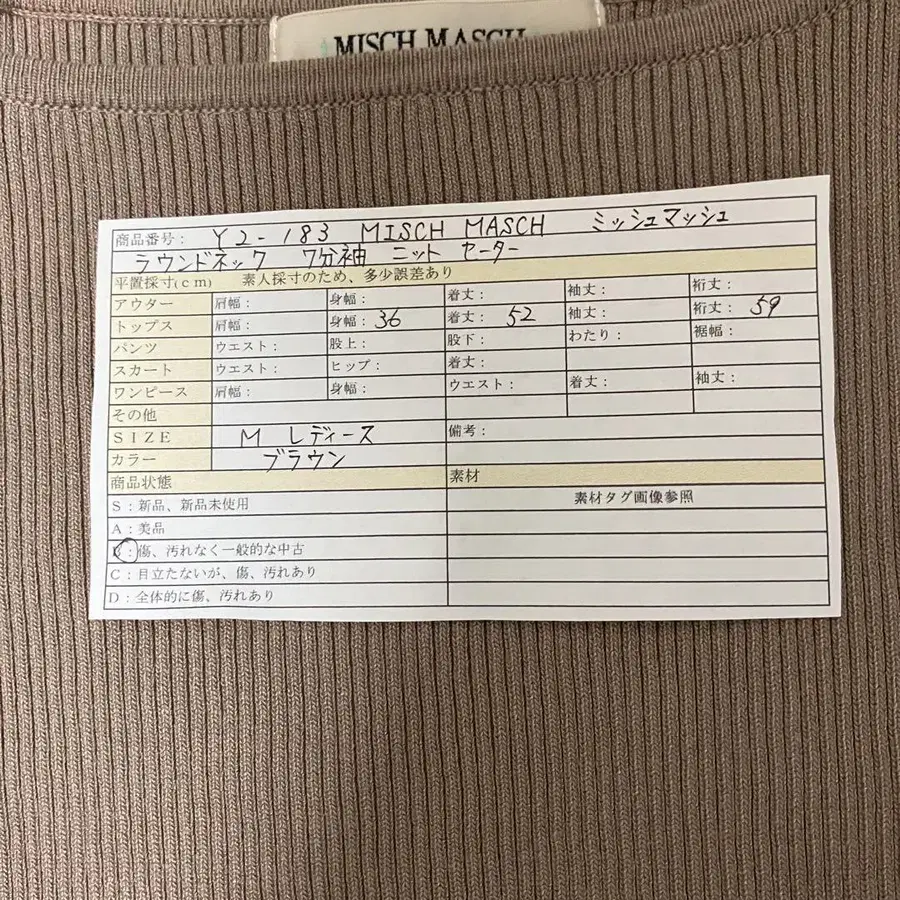 MISCH MASCH
商品番号： Y2-183 MISCH MASCH ミッシュマッシュ
ラウンドネック 7分袖 ニット セーター
平置採寸(cm) 素人採寸のため、多少誤差あり
アウター 肩幅： 身幅： 着丈： 袖丈： 裄丈：
トップス 肩幅： 身幅： 36 着丈： 52 袖丈： 裄丈： 59
パンツ ウエスト： 股上： 股下： わたり： 裾幅：
スカート ウエスト： ヒップ： 着丈：
ワンピース 肩幅： 身幅： ウエスト： 着丈： 袖丈：
その他
SIZE M レディース 備考：
カラー ブラウン
商品状態 素材
S：新品、新品未使用 素材タグ画像参照
A：美品
B：傷、汚れなく一般的な中古
C：目立たないが、傷、汚れあり
D：全体的に傷、汚れあり